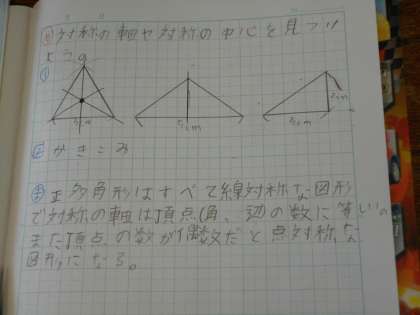 め 対称の軸や対称の中心を見つけ
よう。
5cm 5cm 5cm 2cm
かきこみ
ま 正多角形はすべて線対称な図形
で対称の軸は頂点、角、辺の数に等しい。
また頂点の数が偶数だと点対称な
図形になる。